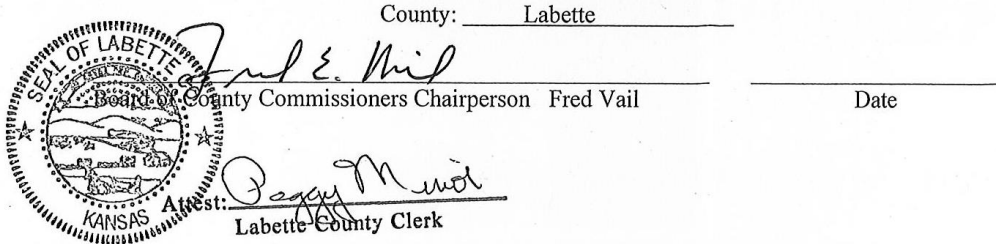 County: Labette
SEAL OF LABETTE CO
Fred E. Vail
Board of County Commissioners Chairperson Fred Vail Date
Attest: Peggy Minor
KANSAS
Labette County Clerk